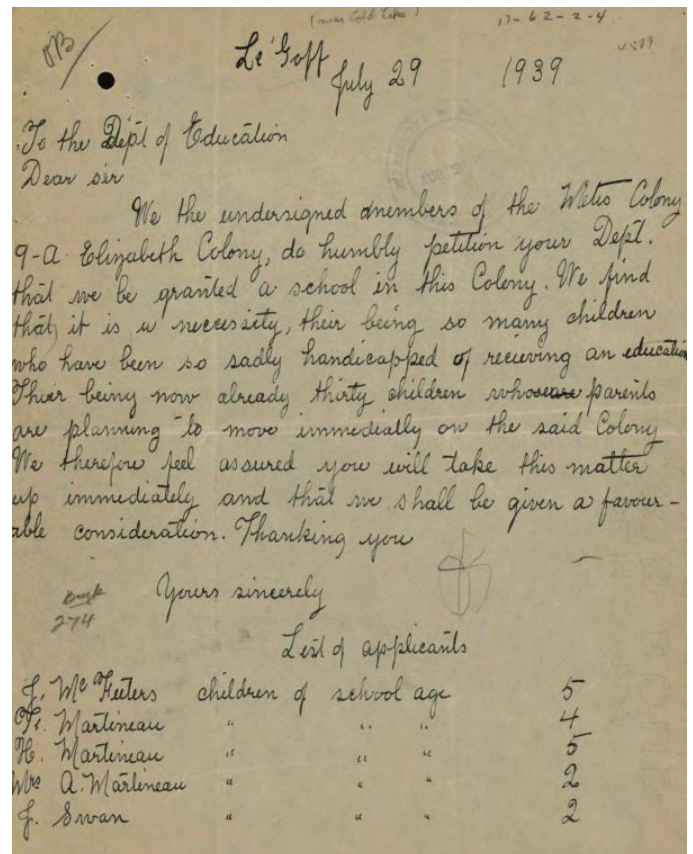 (near Cold Lake) 17-62-2-4
Le'Goff
July 29 1939
To the Dept of Education
Dear sir
We the undersigned members of the Metis Colony
9-A Elizabeth Colony, do humbly petition your Dept.
that we be granted a school in this Colony. We find
that, it is a necessity, their being so many children
who have been so sadly handicapped of recieving an education
Thier being now already thirty children whose parents
are planning to move immediatly on the said Colony
We therefore feel assured you will take this matter
up immediately and that we shall be given a favour-
able consideration. Thanking you
Yours sincerely
274
List of applicants
J. Mc Feeters children of school age 5
Fr. Martineau " " " 4
H. Martineau " " " 5
Mrs A. Martineau " " " 2
J. Swan " " " 2